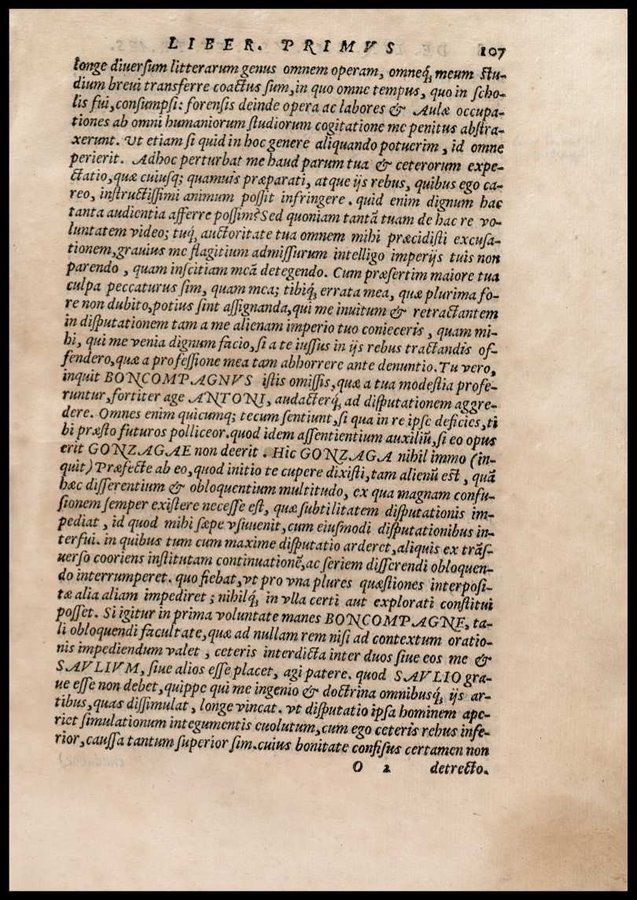 LIBER. PRIMVS 107
longe diuersum litterarum genus omnem operam, omneq́; meum stu-
dium breui transferre coactus sum, in quo omne tempus, quo in scho-
lis fui, consumpsi: forensis deinde opera ac labores & Aulæ occupa-
tiones ab omni humaniorum studiorum cogitatione me penitus abstra-
xerunt. Vt etiam si quid in hoc genere aliquando potuerim, id omne
perierit. Adhoc perturbat me haud parum tua & ceterorum expe-
ctatio, quæ cuiusq; quamuis præparati, atque ijs rebus, quibus ego ca-
reo, instructissimi animum possit infringere. quid enim dignum hac
tanta audientia afferre possim? Sed quoniam tantã tuam de hac re vo-
luntatem video; tuq́; auctoritate tua omnem mihi præcidisti excusa-
tionem, grauius me flagitium admissurum intelligo imperijs tuis non
parendo, quam inscitiam meã detegendo. Cum præsertim maiore tua
culpa peccaturus sim, quam mea; tibiq́; errata mea, quæ plurima fo-
re non dubito, potius sint assignanda, qui me inuitum & retractantem
in disputationem tam a me alienam imperio tuo conieceris, quam mi-
hi, qui me venia dignum facio, si a te iussus in ijs rebus tractandis of-
fendero, quæ a professione mea tam abhorrere ante denuntio. Tu vero,
inquit BONCOMPAGNVS istis omissis, quæ a tua modestia profe-
runtur, fortiter age ANTONI, audacterq́; ad disputationem aggre-
dere. Omnes enim quicumq; tecum sentiunt, si qua in re ipse deficies, ti
bi præsto futuros polliceor. quod idem assentientium auxiliũ, si eo opus
erit GONZAGAE non deerit. Hic GONZAGA nihil immo (in-
quit) Præfecte ab eo, quod initio te cupere dixisti, tam alienũ est, quã
hæc differentium & obloquentium multitudo, ex qua magnam confu-
sionem semper existere necesse est, quæ subtilitatem disputationis im-
pediat, id quod mihi sæpe vsuuenit, cum eiusmodi disputationibus in-
terfui. in quibus tum cum maxime disputatio arderet, aliquis ex trãs-
uerso cooriens institutam continuationẽ, ac seriem disserendi obloquen-
do interrumperet. quo fiebat, vt pro vna plures quæstiones interposi-
tæ alia aliam impediret; nihilq́; in vlla certi aut explorati constitui
posset. Si igitur in prima voluntate manes BONCOMPAGNE, ta-
li obloquendi facultate, quæ ad nullam rem nisi ad contextum oratio-
nis impediendum valet, ceteris interdicta inter duos siue eos me &
SAVLIVM, siue alios esse placet, agi patere. quod SAVLIO gra-
ue esse non debet, quippe qui me ingenio & doctrina omnibusq́; ijs ar-
tibus, quas dissimulat, longe vincat. vt disputatio ipsa hominem ape-
riet simulationum integumentis euolutum, cum ego ceteris rebus infe-
rior, caussa tantum superior sim. cuius bonitate confisus certamen non
O 2 detrecto.